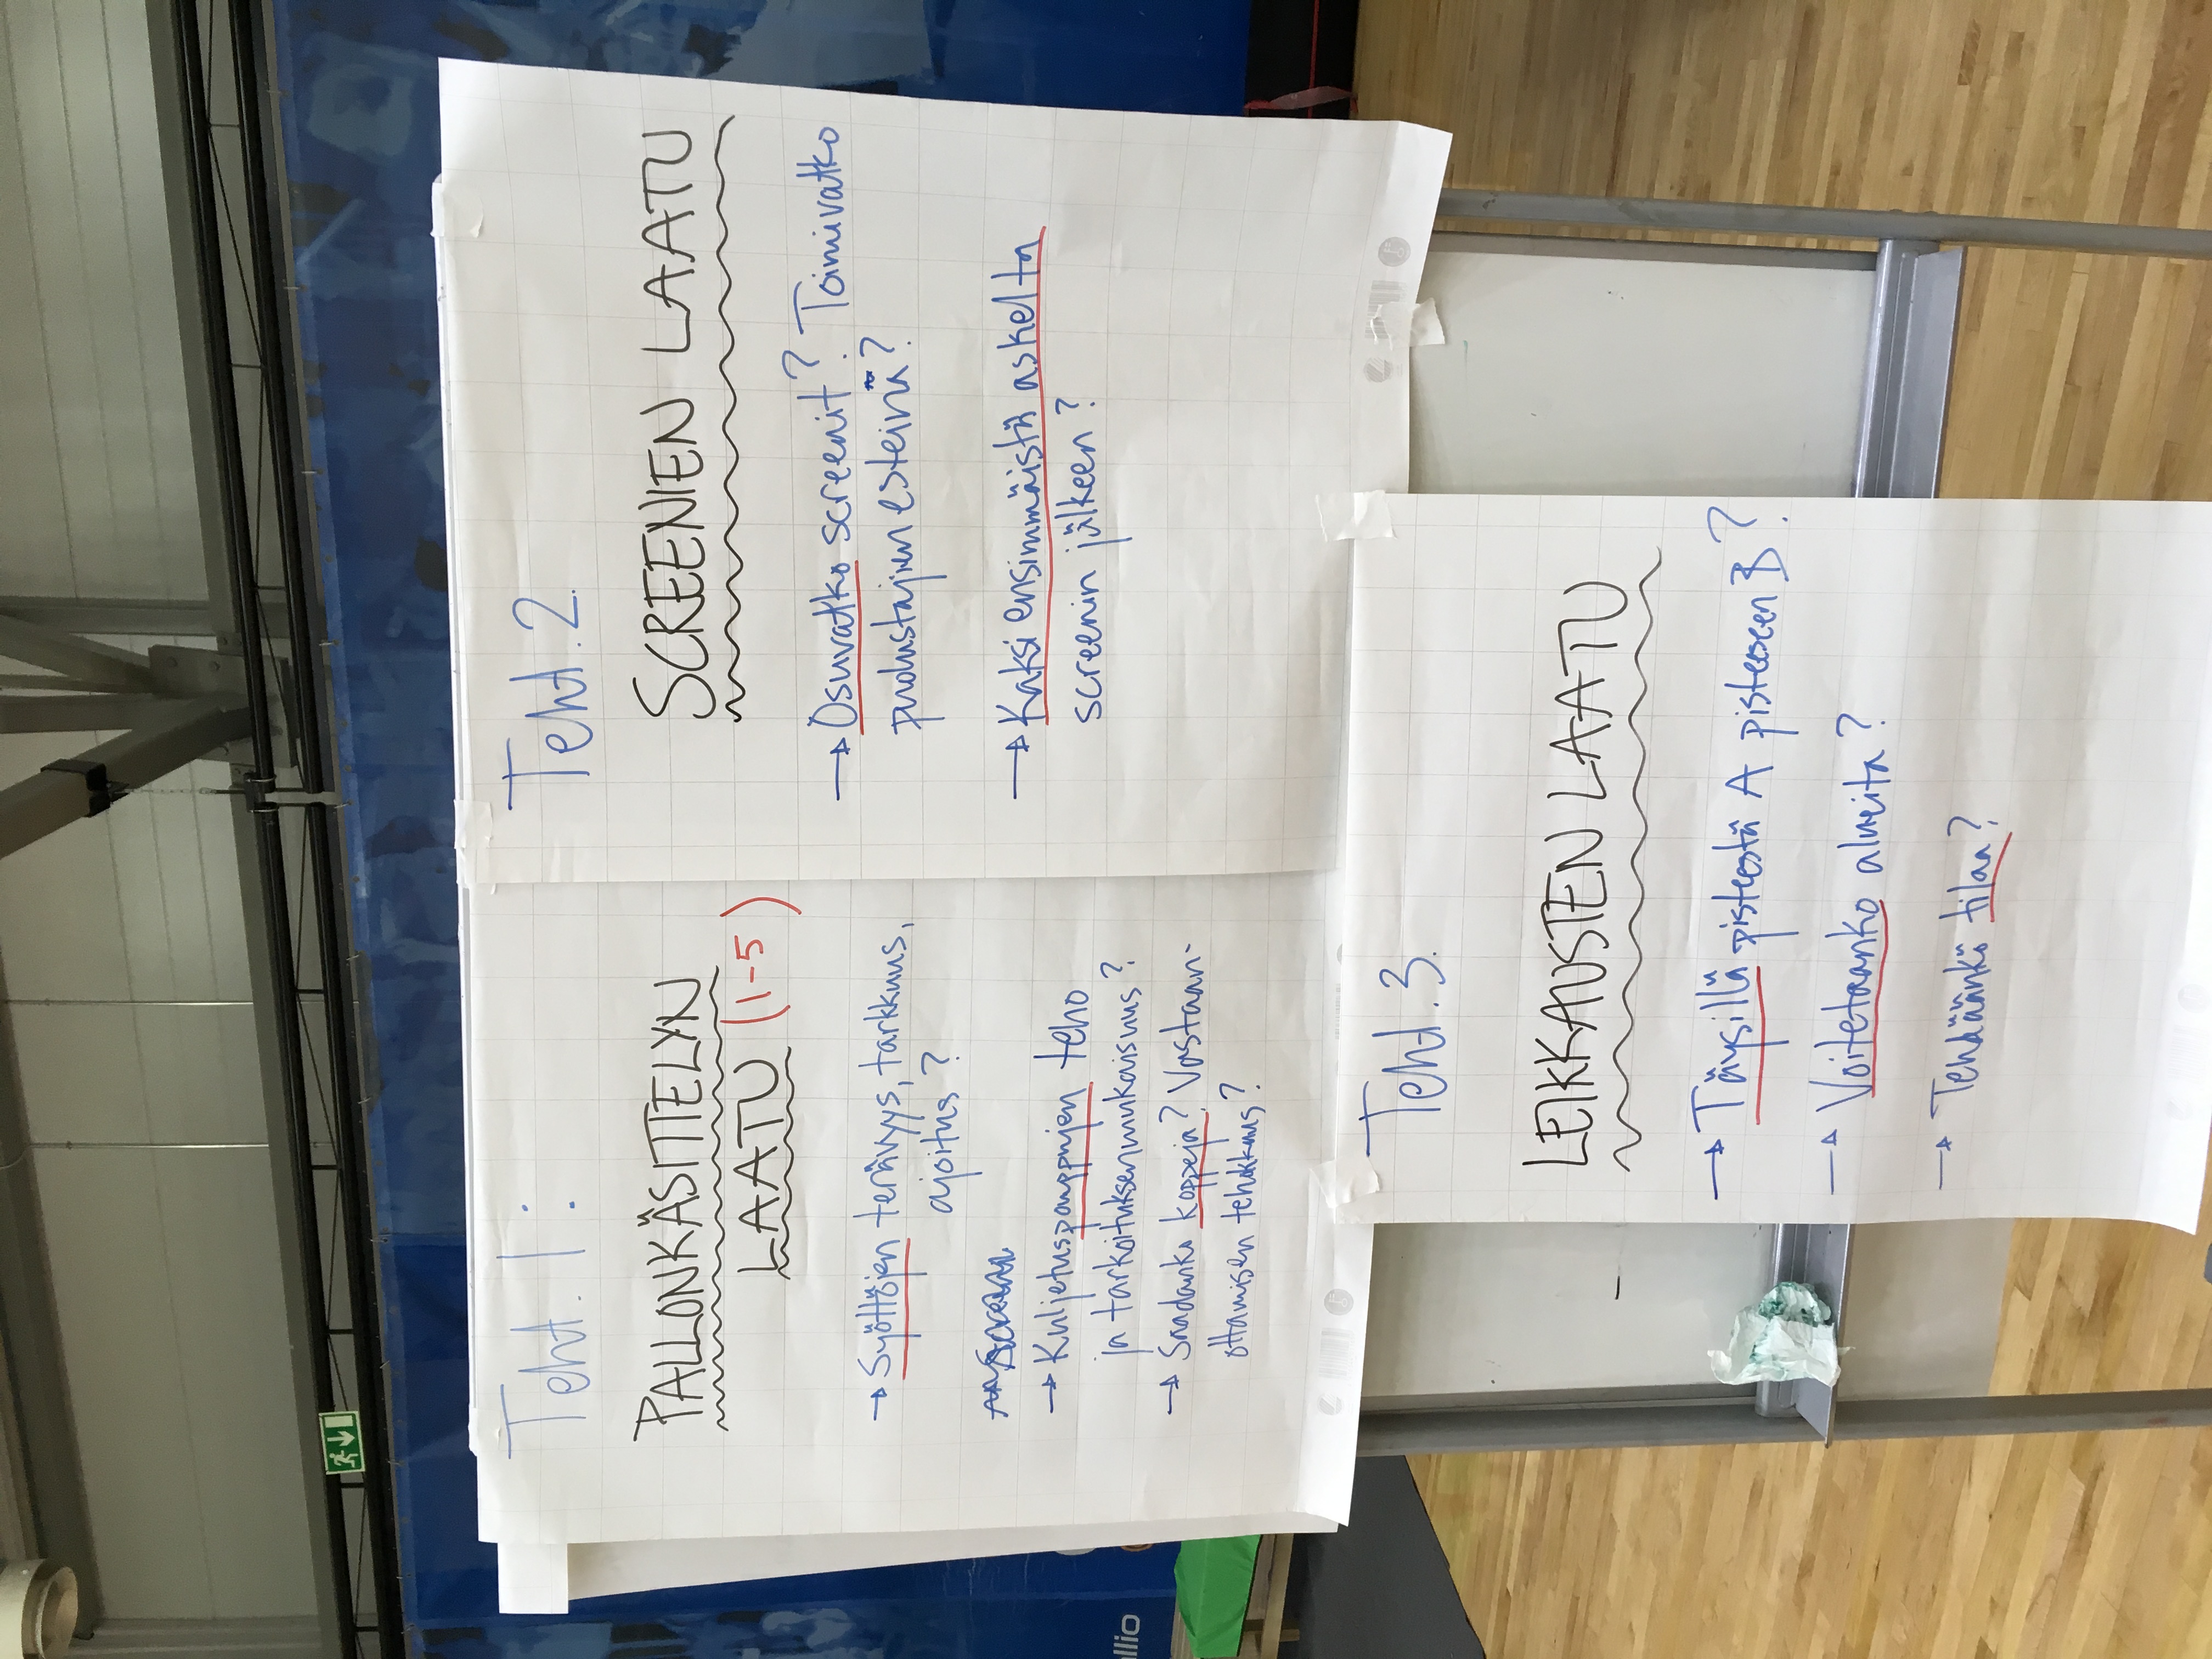 Teht. 1:
PALLONKÄSITTELYN
LAATU (1-5)
→ Syöttöjen terävyys, tarkkuus,
ajoitus?
→ Kuljetuspomppujen teho
ja tarkoituksenmukaisuus?
→ Saadanko koppeja? Vastaan-
ottamisen tehokkuus?
Teht. 2.
SCREENIEN LAATU
→ Osuvatko screenit? Toimivatko
puolustajien esteinä?
→ Kaksi ensimmäistä askelta
screenin jälkeen?
Teht. 3.
LEIKKAUSTEN LAATU
→ Täysillä pisteestä A pisteeseen B?
→ Voitetaanko alueita?
→ Tehdäänkö tilaa?
llio